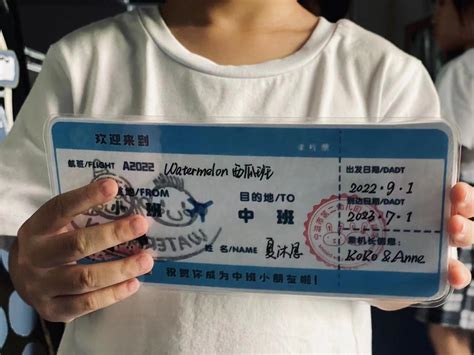 欢迎来到
航班/FLIGHT A2022 Watermelon 西瓜班
出发日期/DADT
2022.9.1
地/FROM
目的地/TO
小班
中班
到达日期/DADT
2023.7.1
姓名/NAME 夏沐恩
机长信息/
KoKo & Anne
祝贺你成为中班小朋友啦!
WATER